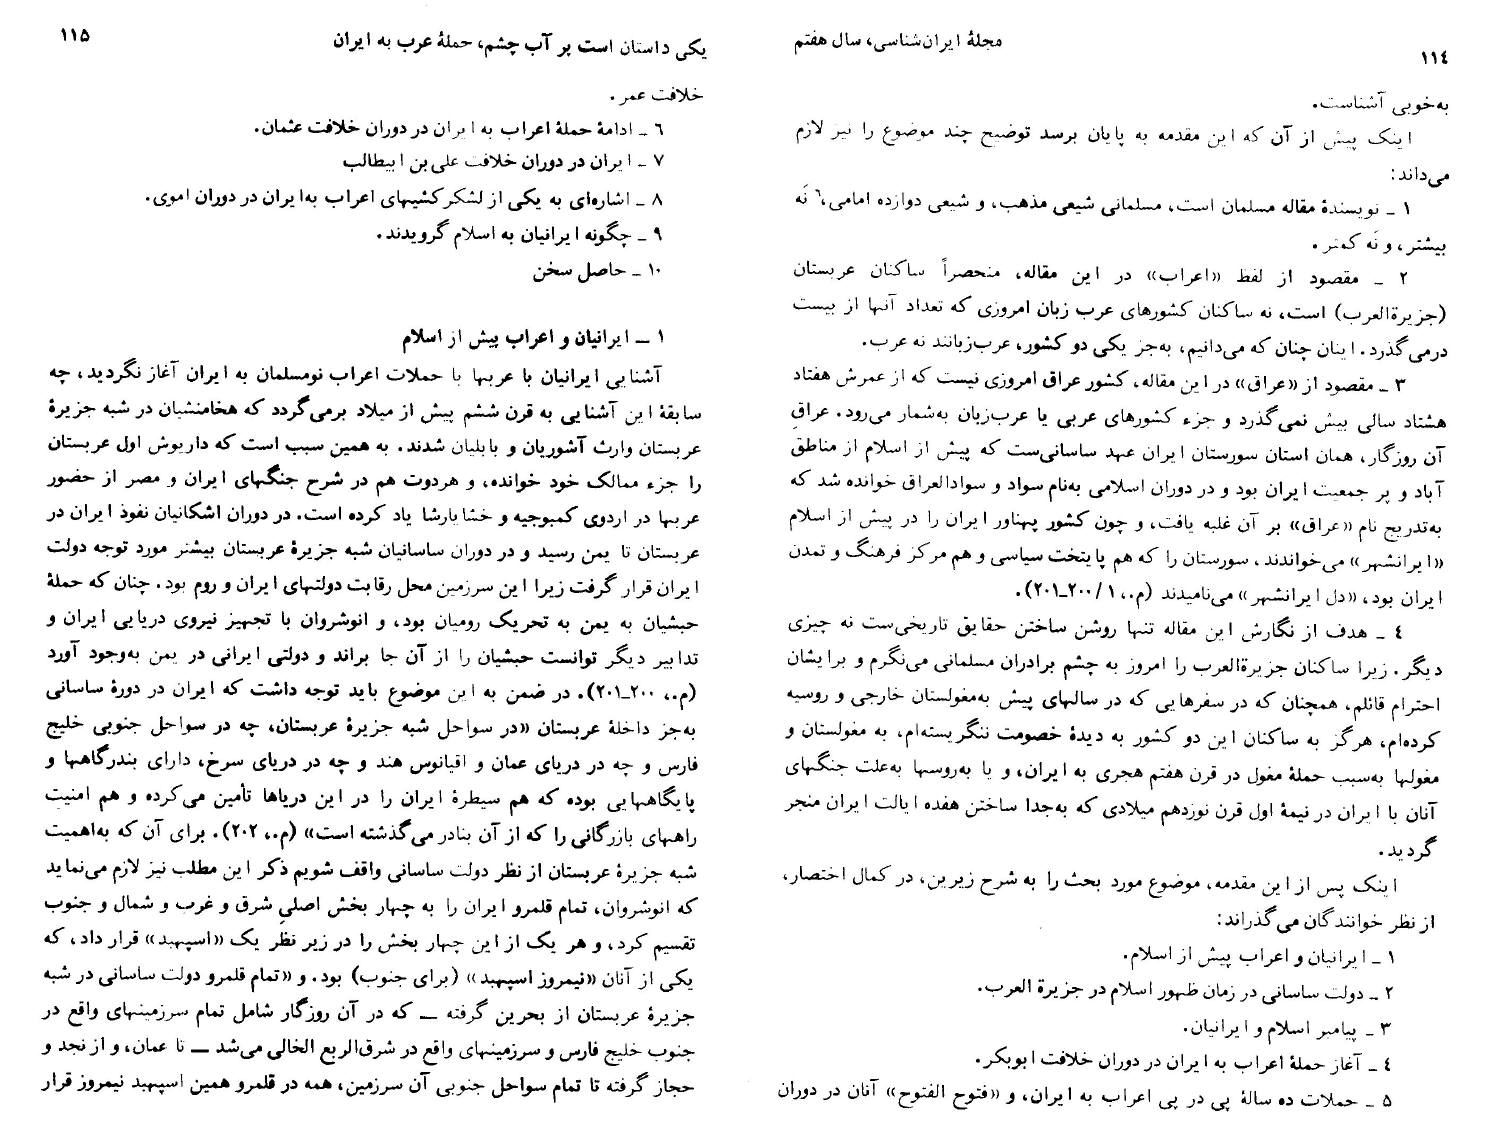 ۱۱۴
مجلهٔ ایران‌شناسی، سال هفتم
به‌خوبی آشناست.
اینک پیش از آن که این مقدمه به پایان برسد توضیح چند موضوع را نیز لازم
می‌داند:
۱ ـ نویسندهٔ مقاله مسلمان است، مسلمانی شیعی مذهب، و شیعی دوازده امامی،⁶ نَه
بیشتر، و نَه کمتر.
۲ ـ مقصود از لفظ «اعراب» در این مقاله، منحصراً ساکنان عربستان
(جزیرةالعرب) است، نه ساکنان کشورهای عرب زبان امروزی که تعداد آنها از بیست
درمی‌گذرد. اینان چنان که می‌دانیم، به‌جز یکی دو کشور، عرب‌زبانند نه عرب.
۳ ـ مقصود از «عراق» در این مقاله، کشور عراق امروزی نیست که از عمرش هفتاد
هشتاد سالی بیش نمی‌گذرد و جزء کشورهای عربی یا عرب‌زبان به‌شمار می‌رود. عراقِ
آن روزگار، همان استان سورستان ایران عهد ساسانی‌ست که پیش از اسلام از مناطق
آباد و پر جمعیت ایران بود و در دوران اسلامی به‌نام سواد و سوادالعراق خوانده شد که
به‌تدریج نام «عراق» بر آن غلبه یافت، و چون کشور پهناور ایران را در پیش از اسلام
«ایرانشهر» می‌خواندند، سورستان را که هم پایتخت سیاسی و هم مرکز فرهنگ و تمدن
ایران بود، «دل ایرانشهر» می‌نامیدند (م.، ۱/ ۲۰۰ـ۲۰۱).
۴ ـ هدف از نگارش این مقاله تنها روشن ساختن حقایق تاریخی‌ست نه چیزی
دیگر. زیرا ساکنان جزیرةالعرب را امروز به چشم برادران مسلمانی می‌نگرم و برایشان
احترام قائلم، همچنان که در سفرهایی که در سالهای پیش به‌مغولستان خارجی و روسیه
کرده‌ام، هرگز به ساکنان این دو کشور به دیدهٔ خصومت ننگریسته‌ام، به مغولستان و
مغولها به‌سبب حملهٔ مغول در قرن هفتم هجری به ایران، و یا به‌روسها به‌علت جنگهای
آنان با ایران در نیمهٔ اول قرن نوزدهم میلادی که به‌جدا ساختن هفده ایالت ایران منجر
گردید.
اینک پس از این مقدمه، موضوع مورد بحث را به شرح زیرین، در کمال اختصار،
از نظر خوانندگان می‌گذراند:
۱ ـ ایرانیان و اعراب پیش از اسلام.
۲ ـ دولت ساسانی در زمان ظهور اسلام در جزیرة العرب.
۳ ـ پیامبر اسلام و ایرانیان.
۴ ـ آغاز حملهٔ اعراب به ایران در دوران خلافت ابوبکر.
۵ ـ حملات ده سالهٔ پی در پی اعراب به ایران، و «فتوح الفتوح» آنان در دوران
یکی داستان است پر آب چشم، حملهٔ عرب به ایران
۱۱۵
خلافت عمر.
۶ ـ ادامهٔ حملهٔ اعراب به ایران در دوران خلافت عثمان.
۷ ـ ایران در دوران خلافت علی بن ابیطالب
۸ ـ اشاره‌ای به یکی از لشکرکشیهای اعراب به‌ایران در دوران اموی.
۹ ـ چگونه ایرانیان به اسلام گرویدند.
۱۰ ـ حاصل سخن
۱ ـ ایرانیان و اعراب پیش از اسلام
آشنایی ایرانیان با عربها با حملات اعراب نومسلمان به ایران آغاز نگردید، چه
سابقهٔ این آشنایی به قرن ششم پیش از میلاد برمی‌گردد که هخامنشیان در شبه جزیرهٔ
عربستان وارث آشوریان و بابلیان شدند. به همین سبب است که داریوش اول عربستان
را جزء ممالک خود خوانده، و هردوت هم در شرح جنگهای ایران و مصر از حضور
عربها در اردوی کمبوجیه و خشایارشا یاد کرده است. در دوران اشکانیان نفوذ ایران در
عربستان تا یمن رسید و در دوران ساسانیان شبه جزیرهٔ عربستان بیشتر مورد توجه دولت
ایران قرار گرفت زیرا این سرزمین محل رقابت دولتهای ایران و روم بود. چنان که حملهٔ
حبشیان به یمن به تحریک رومیان بود، و انوشروان با تجهیز نیروی دریایی ایران و
تدابیر دیگر توانست حبشیان را از آن جا براند و دولتی ایرانی در یمن به‌وجود آورد
(م.، ۲۰۰ـ۲۰۱). در ضمن به این موضوع باید توجه داشت که ایران در دورهٔ ساسانی
به‌جز داخلهٔ عربستان «در سواحل شبه جزیرهٔ عربستان، چه در سواحل جنوبی خلیج
فارس و چه در دریای عمان و اقیانوس هند و چه در دریای سرخ، دارای بندرگاهها و
پایگاههایی بوده که هم سیطرهٔ ایران را در این دریاها تأمین می‌کرده و هم امنیت
راههای بازرگانی را که از آن بنادر می‌گذشته است» (م.، ۲۰۲). برای آن که به‌اهمیت
شبه جزیرهٔ عربستان از نظر دولت ساسانی واقف شویم ذکر این مطلب نیز لازم می‌نماید
که انوشروان، تمام قلمرو ایران را به چهار بخش اصلیِ شرق و غرب و شمال و جنوب
تقسیم کرد، و هر یک از این چهار بخش را در زیر نظر یک «اسپهبد» قرار داد، که
یکی از آنان «نیمروز اسپهبد» (برای جنوب) بود. و «تمام قلمرو دولت ساسانی در شبه
جزیرهٔ عربستان از بحرین گرفته ـــ که در آن روزگار شامل تمام سرزمینهای واقع در
جنوب خلیج فارس و سرزمینهای واقع در شرق‌الربع الخالی می‌شد ـــ تا عمان، و از نجد و
حجاز گرفته تا تمام سواحل جنوبی آن سرزمین، همه در قلمرو همین اسپهبد نیمروز قرار